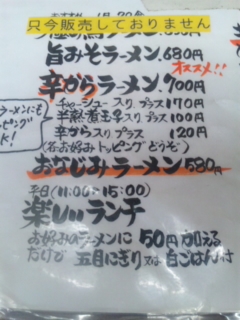 只今販売しておりません
旨みそラーメン 680円
オススメ!!
辛からラーメン 700円
チャーシュー入り プラス 170円
半熟煮玉子入り プラス 100円
辛から入り プラス 120円
(名お好み トッピング どうぞ)
ラーメンにも
トッピング
おなじみラーメン 580円
平日(11:00~15:00)
楽しいランチ
お好みのラーメンに 50円 加える
だけで 五目にぎり又は 白ごはん付